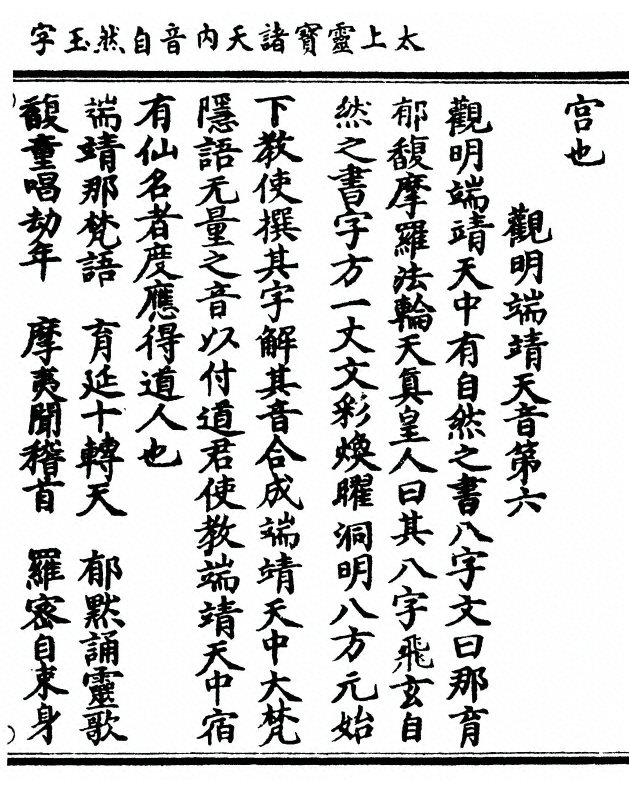 太上靈寶諸天內音自然玉字
宮也
觀明端靖天音第六
觀明端靖天中有自然之書八字文曰那育
郁馥摩羅法輪天真皇人曰其八字飛玄自
然之書字方一丈文彩煥曜洞明八方元始
下教使撰其字解其音合成端靖天中大梵
隱語无量之音以付道君使教端靖天中宿
有仙名者度應得道人也
端靖那梵語　育延十轉天　郁默誦靈歌
馥童唱劫年　摩夷聞稽首　羅密自束身